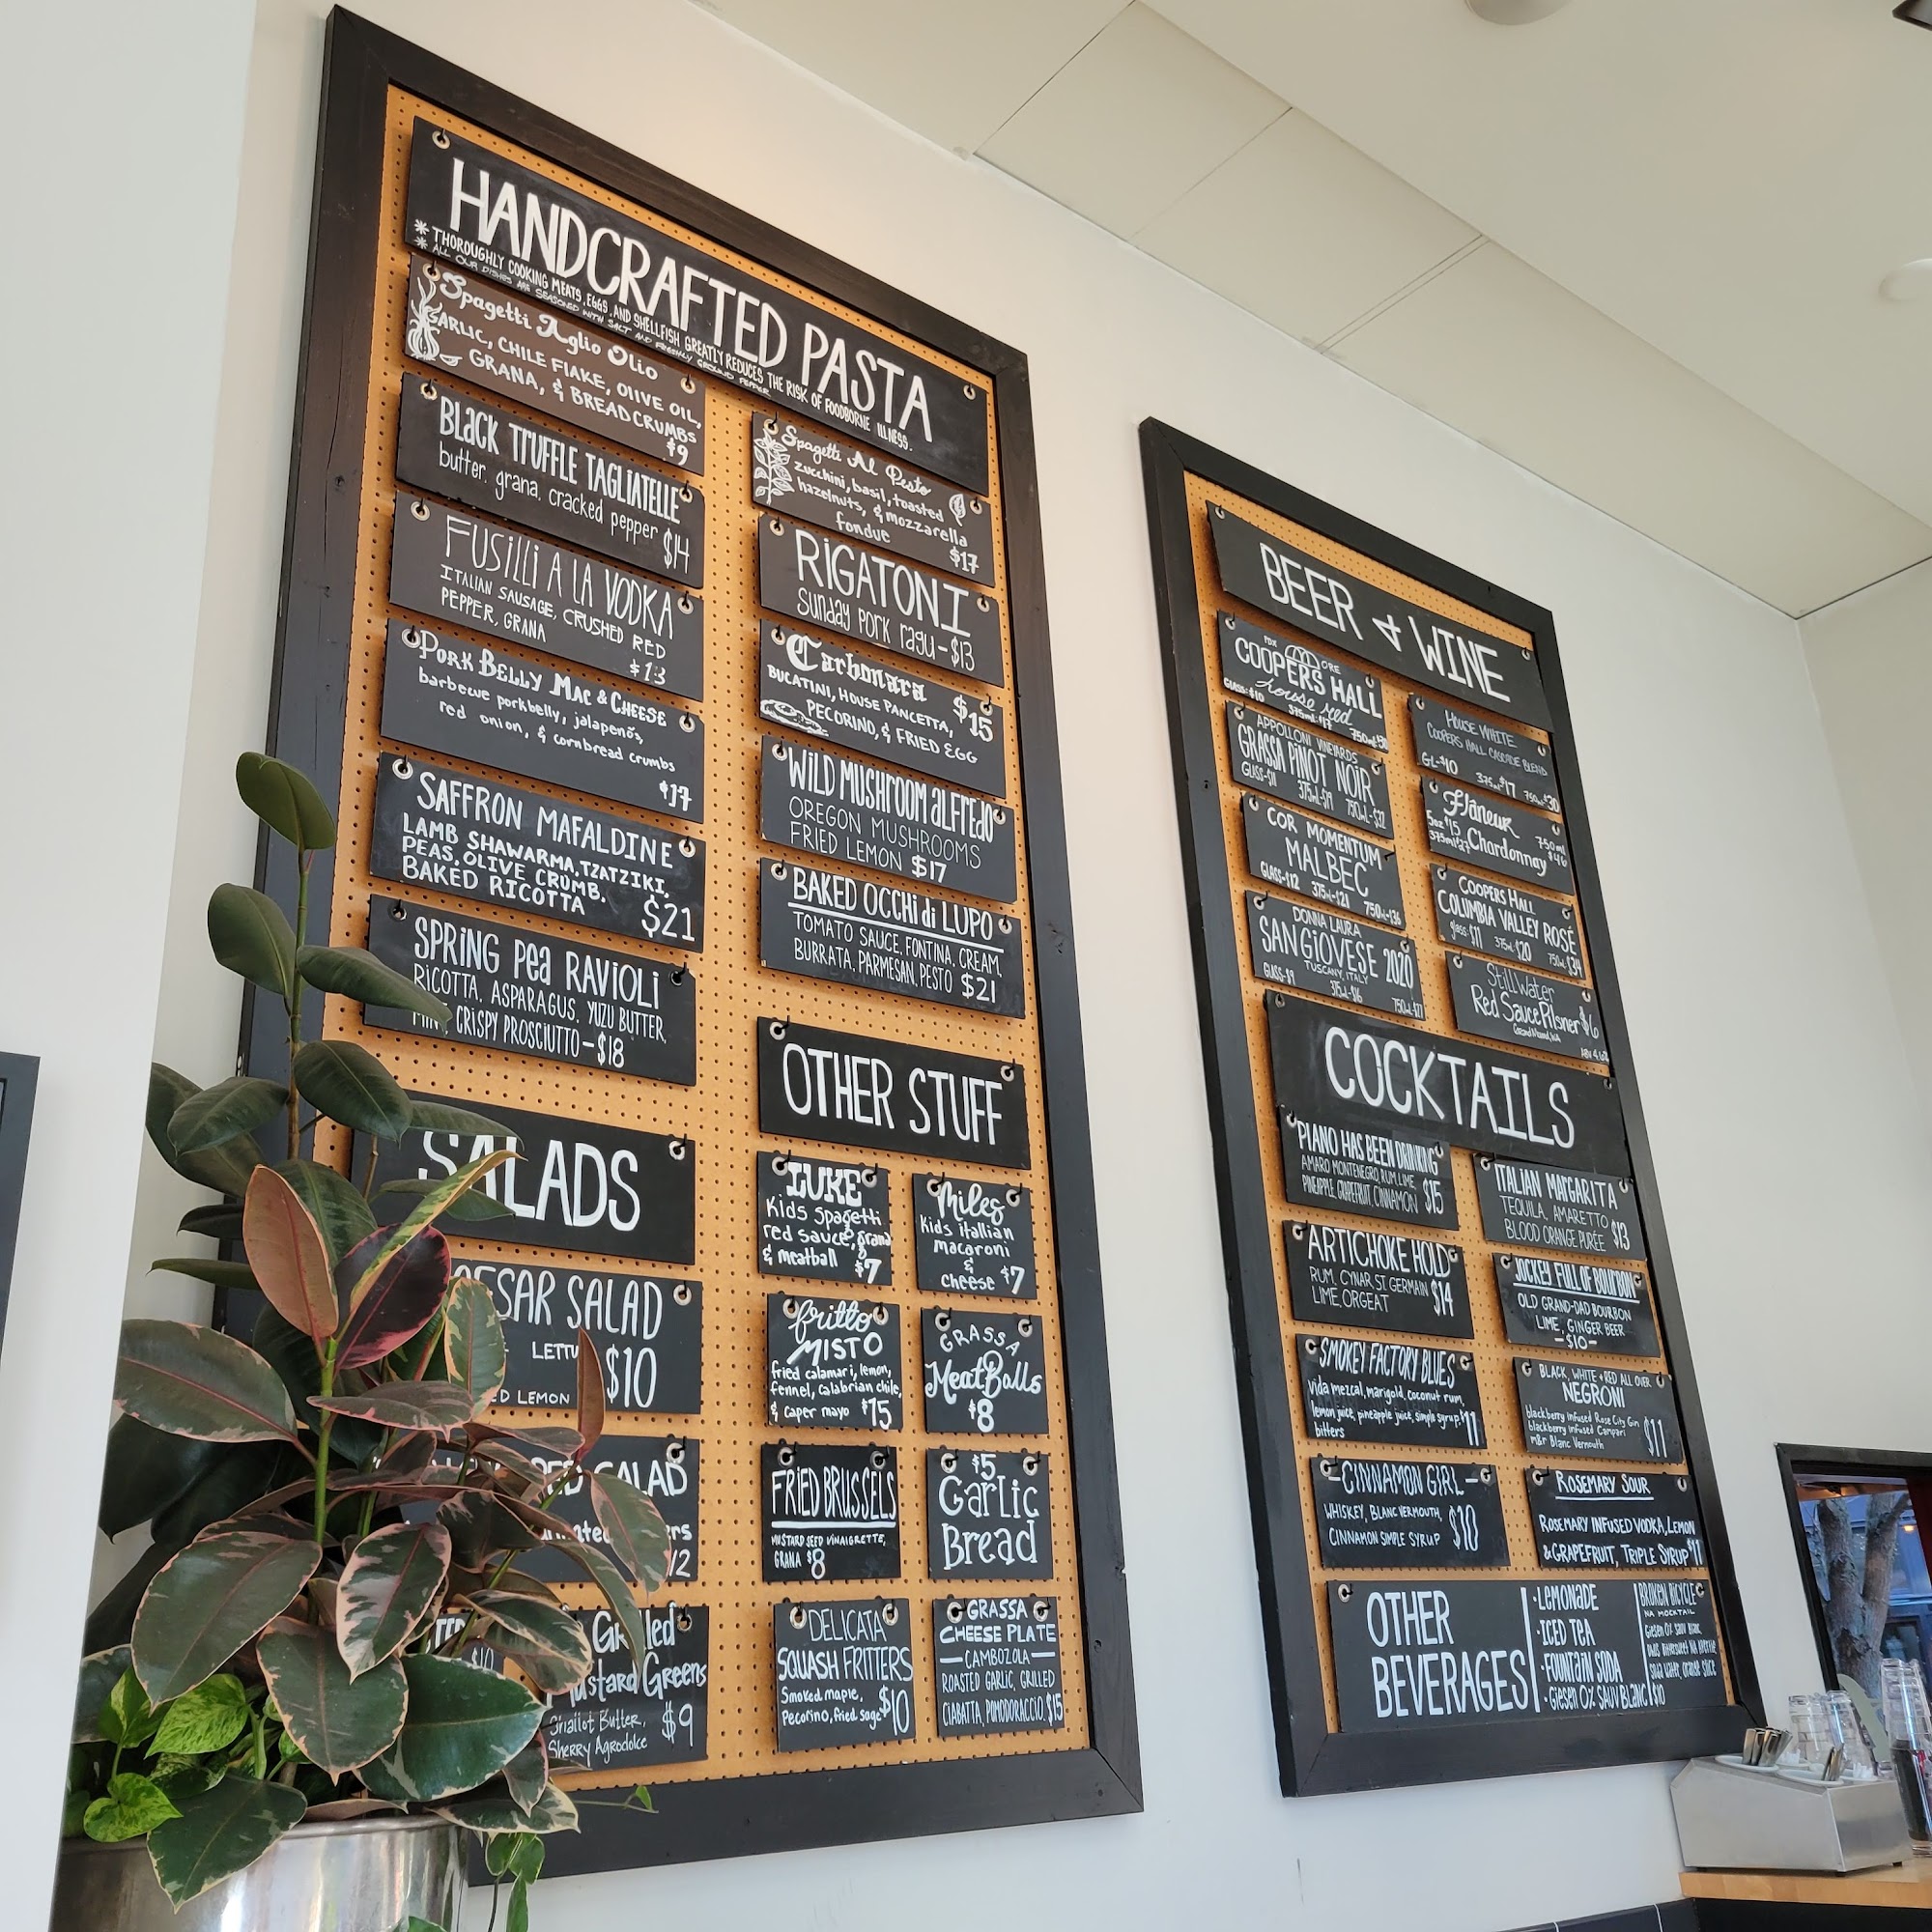 HANDCRAFTED PASTA
* THOROUGHLY COOKING MEATS, EGGS, AND SHELLFISH GREATLY REDUCES THE RISK OF FOODBORNE ILLNESS.
* ALL OUR DISHES ARE SEASONED WITH SALT AND FRESHLY GROUND PEPPER
Spagetti Aglio Olio
GARLIC, CHILE FlAKE, OlIVE OIL,
GRANA, & BREADCRUMBS
$9
BLACK TRUFFLE TAGLIATELLE
butter, grana, cracked pepper $14
FUSILLI A LA VODKA
ITALIAN SAUSAGE, CRUSHED RED
PEPPER, GRANA
$13
PORK BELLY MAC & CHEESE
barbecue porkbelly, jalapenõs,
red onion, & cornbread crumbs
$17
SAFFRON MAFALDINE
LAMB SHAWARMA, TZATZIKI,
PEAS, OLIVE CRUMB,
BAKED RICOTTA $21
SPRING Pea RAVIOLI
RICOTTA, ASPARAGUS, YUZU BUTTER,
MINT, CRISPY PROSCIUTTO-$18
Spagetti Al Pesto
zucchini, basil, toasted
hazelnuts, & mozzarella
fondue
$17
RIGATONI
Sunday pork ragu-$13
Carbonara
BUCATINI, HOUSE PANCETTA, $15
PECORINO, & FRIED EGG
WILD MUSHROOM alFredo
OREGON MUSHROOMS
FRIED LEMON $17
BAKED OCCHI di LUPO
TOMATO SAUCE, FONTINA, CREAM,
BURRATA, PARMESAN, PESTO $21
SALADS
SALAD
$10
LEMON
SALAD
Grilled
Mustard Greens
Shallot Butter, $9
Sherry Agrodolce
OTHER STUFF
LUKE
Kids Spagetti
red sauce, grana
& meatball $7
Miles
Kids itallian
macaroni
&
cheese $7
fritto
MISTO
fried calamari, lemon,
fennel, Calabrian chile,
& caper mayo $15
GRASSA
MeatBalls
$8
FRIED BRUSSELS
MUSTARD SEED VINAIGRETTE,
GRANA $8
$5
Garlic
Bread
DELICATA
SQUASH FRITTERS
Smoked maple,
Pecorino, fried sage $10
GRASSA
CHEESE PLATE
CAMBOZOLA
ROASTED GARLIC, GRILLED
CIABATTA, POMODORACCIO $15
BEER & WINE
COOPERS HALL
house red
GLASS-$10 375ml-$17
APPOLLONI VINEYARDS
GRASSA PINOT NOIR
GLASS-$11 375ml-$19 750ml-$32
COR MOMENTUM
MALBEC
GLASS-$12 375ml-$21 750ml-$36
DONNA LAURA
SANGIOVESE 2020
TUSCANY, ITALY
GLASS-$9 375ml-$16 750ml-$27
HOUSE WHITE
COOPERS HALL CASCADE BLEND
GL-$10 375ml $17 750ml-$30
Flâneur
Chardonnay
5oz $15
375ml $27
750ml
$46
COOPERS HALL
COLUMBIA VALLEY ROSÉ
glass-$11 375ml-$20 750ml-$34
StillWater
Red Sauce Pilsner $6
COCKTAILS
PIANO HAS BEEN DRINKING
AMARO MONTENEGRO, RUM, LIME,
PINEAPPLE, GRAPEFRUIT, CINNAMON $15
ARTICHOKE HOLD
RUM, CYNAR, ST GERMAIN
LIME, ORGEAT $14
SMOKEY FACTORY BLUES
vida mezcal, marigold, coconut rum,
lemon juice, pineapple juice, simple syrup $11
bitters
-CINNAMON GIRL-
WHISKEY, BLANC VERMOUTH,
CINNAMON SIMPLE SYRUP $10
ITALIAN MARGARITA
TEQUILA, AMARETTO
BLOOD ORANGE PURÉE $13
JOCKEY FULL OF BOURBON
OLD GRAND-DAD BOURBON
LIME, GINGER BEER
-$10-
BLACK, WHITE + RED ALL OVER
NEGRONI
blackberry infused Rose City Gin
blackberry infused Campari
m&r Blanc Vermouth $11
ROSEMARY SOUR
ROSEMARY INFUSED VODKA, LEMON
& GRAPEFRUIT, TRIPLE SYRUP $11
OTHER
BEVERAGES
·LEMONADE
·ICED TEA
·FOUNTAIN SODA
·Giesen 0% SAUV BLANC $10
BROKEN BICYCLE
NA MOCKTAIL
Giesen 0% Sauv Blanc
soda water, orange slice